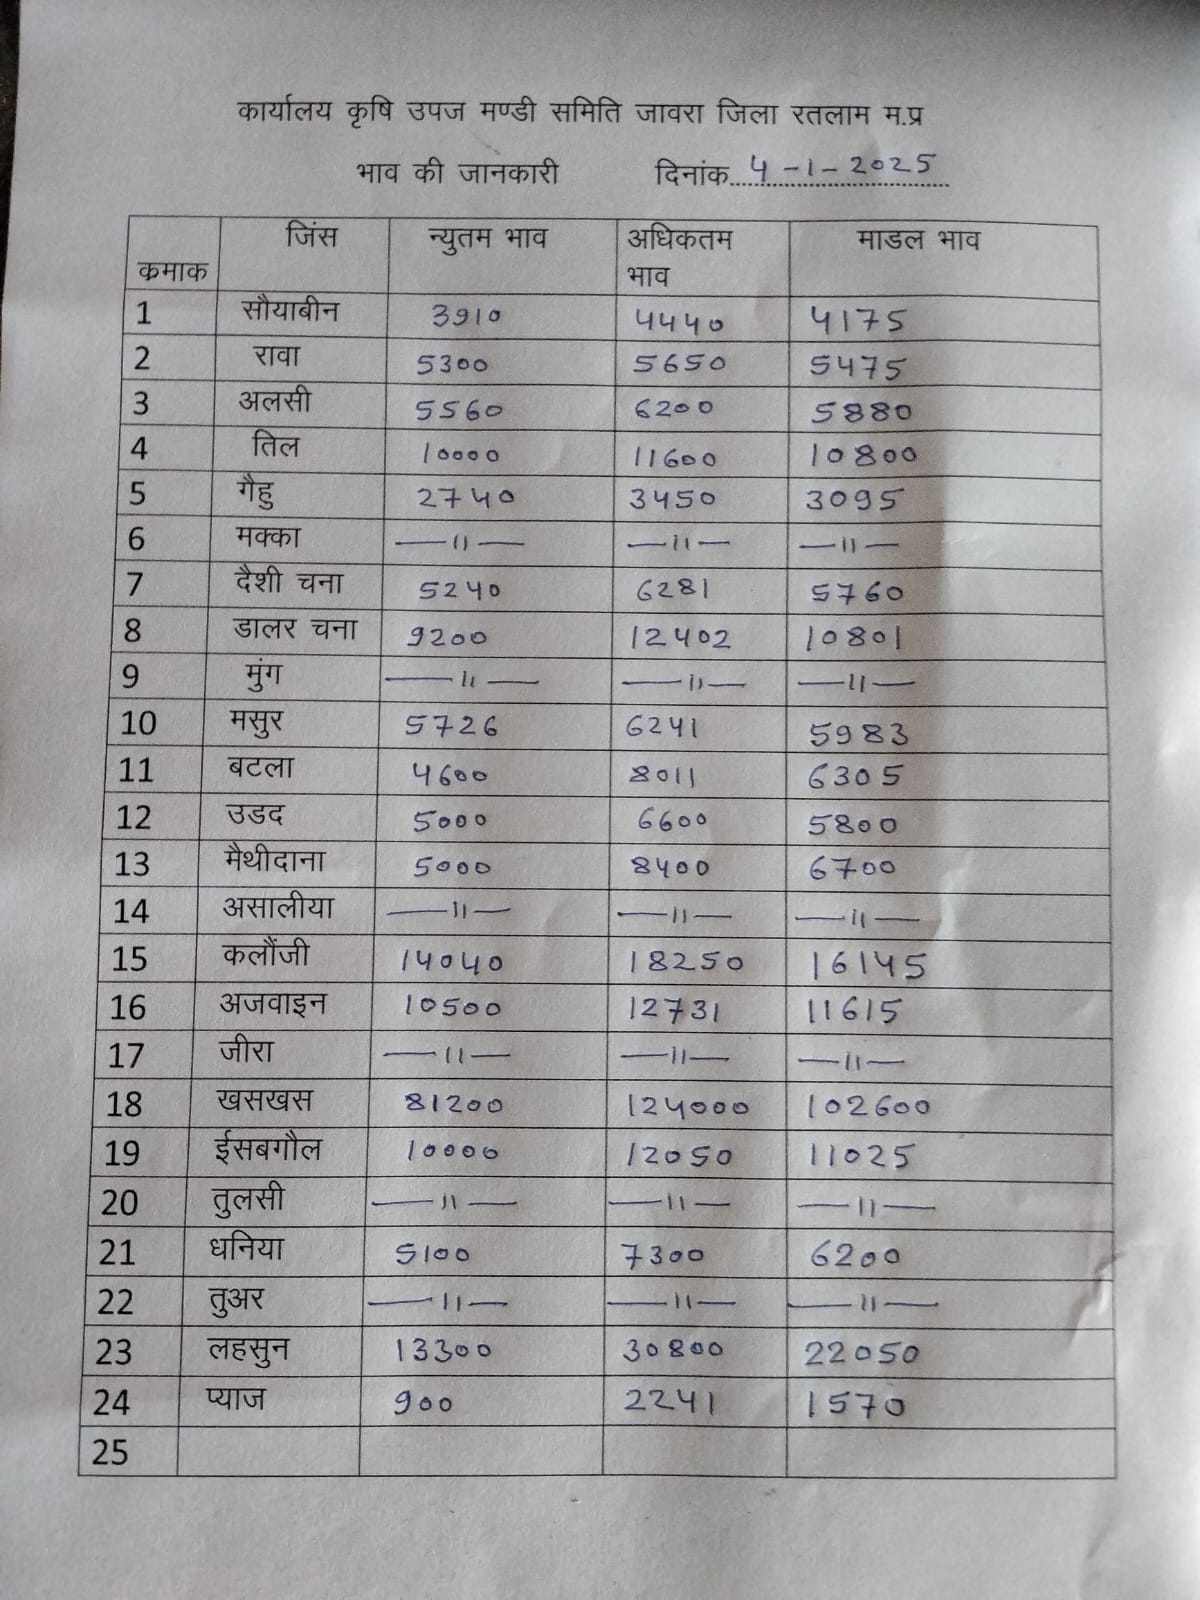 कार्यालय कृषि उपज मण्डी समिति जावरा जिला रतलाम म.प्र
भाव की जानकारी दिनांक 4-1-2025
कमाक जिंस न्युतम भाव अधिकतम भाव माडल भाव
1 सौयाबीन 3910 4440 4175
2 रावा 5300 5650 5475
3 अलसी 5560 6200 5880
4 तिल 10000 11600 10800
5 गैहु 2740 3450 3095
6 मक्का —11— —11— —11—
7 दैशी चना 5240 6281 5760
8 डालर चना 9200 12402 10801
9 मुंग —11— —11— —11—
10 मसुर 5726 6241 5983
11 बटला 4600 8011 6305
12 उडद 5000 6600 5800
13 मैथीदाना 5000 8400 6700
14 असालीया —11— —11— —11—
15 कलौंजी 14040 18250 16145
16 अजवाइन 10500 12731 11615
17 जीरा —11— —11— —11—
18 खसखस 81200 124000 102600
19 ईसबगौल 10000 12050 11025
20 तुलसी —11— —11— —11—
21 धनिया 5100 7300 6200
22 तुअर —11— —11— —11—
23 लहसुन 13300 30800 22050
24 प्याज 900 2241 1570
25